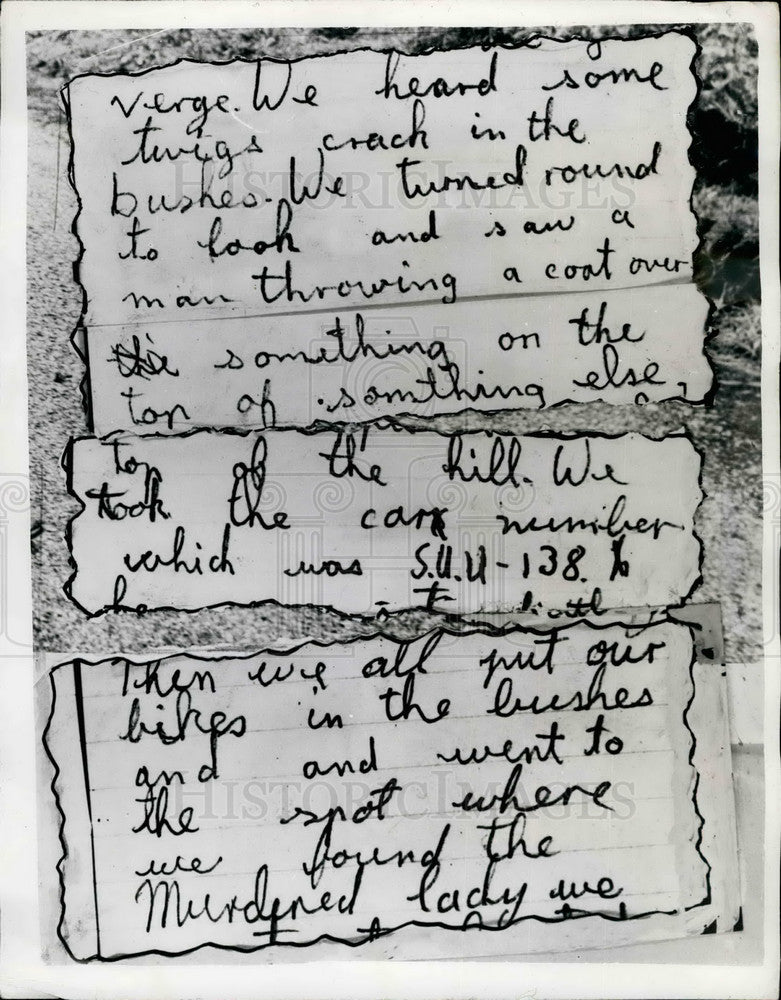 verge. We heard some
twigs crack in the
bushes. We turned round
to look and saw a
man throwing a coat over
something on the
top of somthing else,
top of the hill. We
took the car number
which was S.U.U-138.
he
Then we all put our
bikes in the bushes
and and went to
the spot where
we found the
Murdered lady we
HISTORIC IMAGES
HISTORIC IMAGES